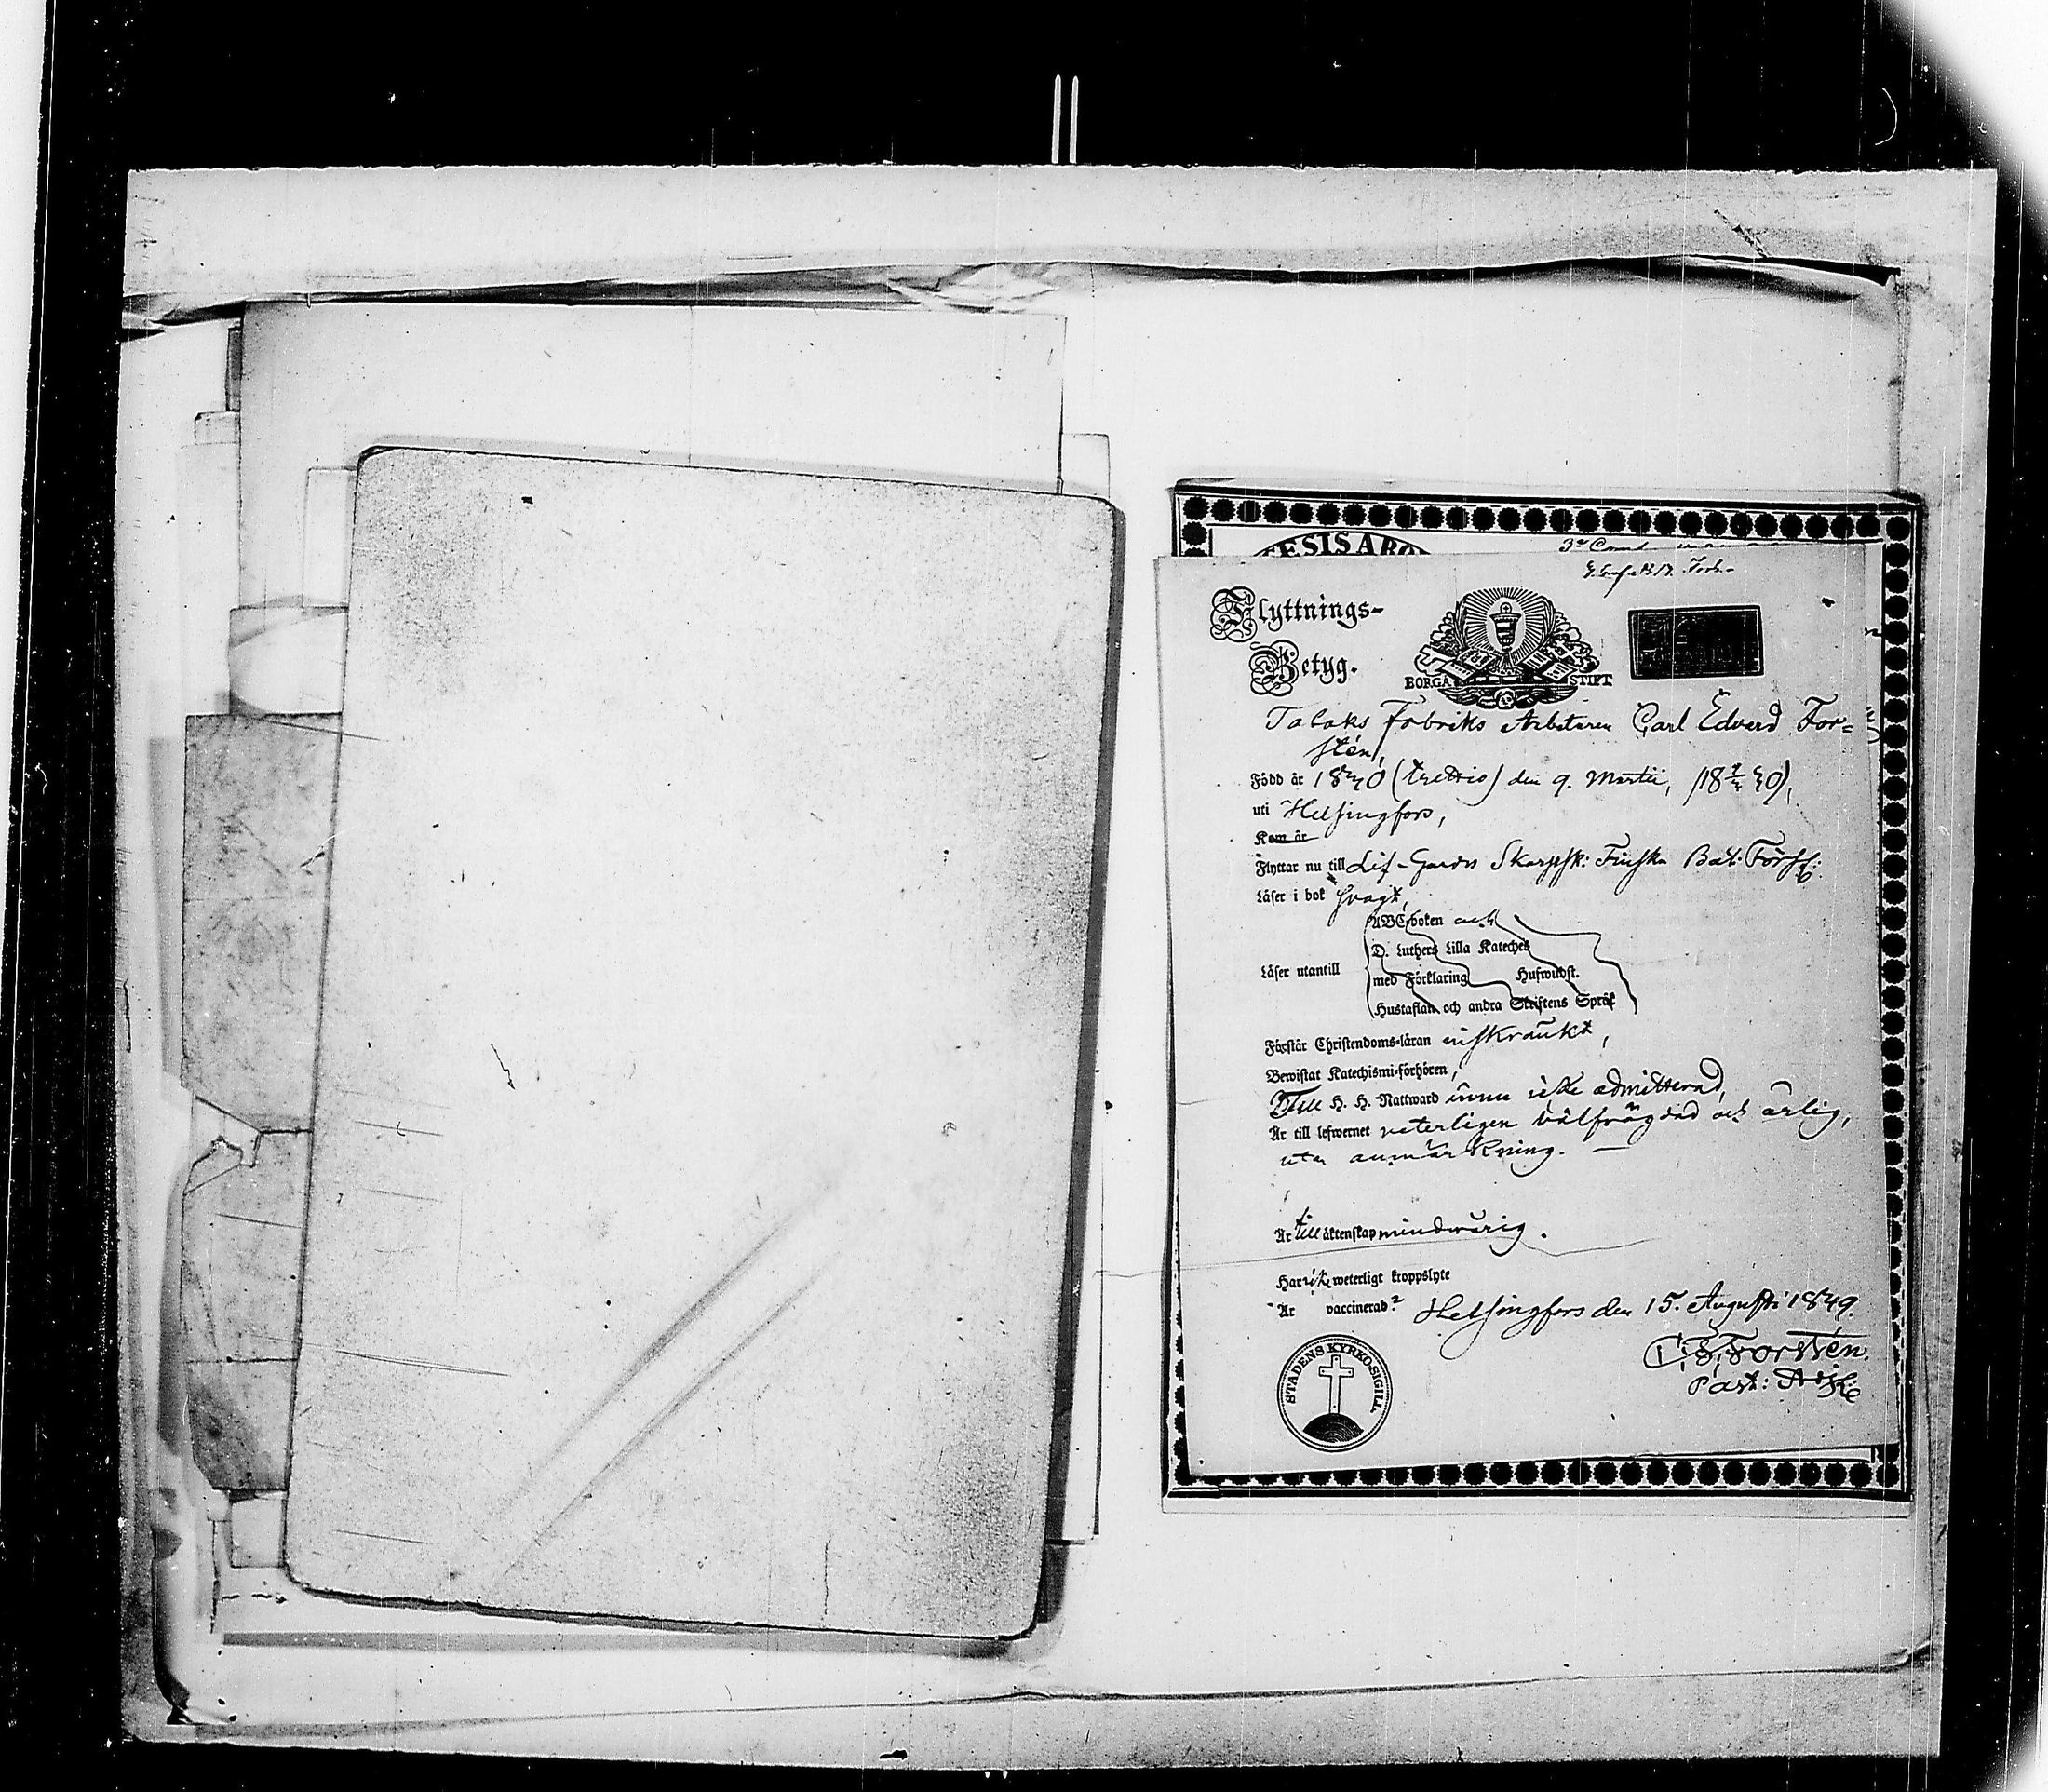 3:e Comp.
Flyttnings-
Betyg.
BORGÅ STIFT
Tabaks Fabriks Arbetaren Carl Edvard For=
stén,
Född år 1830 (trettio) den 9. Martii, (18 9/3 30),
uti Helsingfors,
Kom år
Flyttar nu till Lif-Gardes Skarpsk: Finska Bat: Förs:
Läser i bok svagt,
ABC boken och
D. Luthers Lilla Kateches
Läser utantill
med Förklaring Hufwudst.
Hustaflan och andra Skriftens Språk
Förstår Christendoms-läran inskränkt,
Bewistat Katechismi-förhören,
Till H. H. Nattward ännu icke admitterad,
Är till lefwernet veterligen välfrägdad och ärlig,
utan anmärkning. —
Är till äktenskap mindreårig.
Har icke weterligt kroppslyte
Är vaccinerad? Helsingfors den 15. Augusti 1849.
C. F. Forstén.
Past: Adj:
STADENS KYRKO-SIGILL.